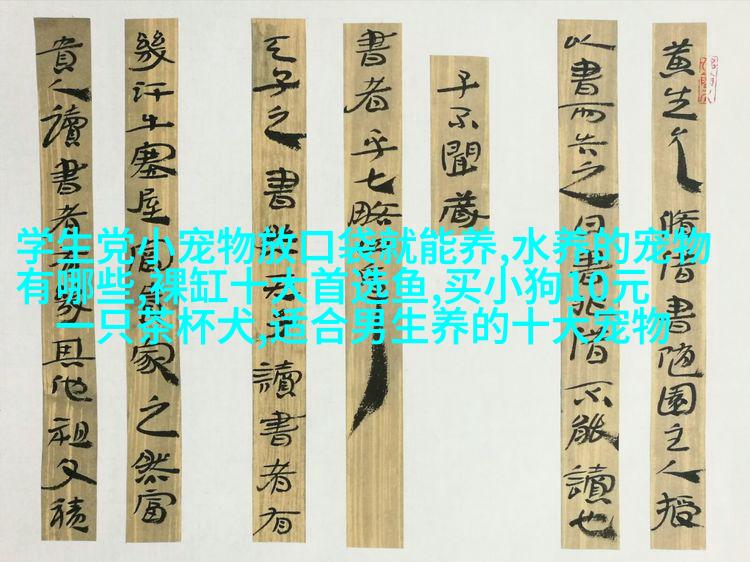 黄生允脩借書随園主人授
以書而告之曰書非借不能讀也
子不聞藏
書者乎七略
天子之書然天子讀書者有
幾汗牛塞屋富貴家之然富
貴人讀書者有幾其他祖父積
学生党小宠物放口袋就能养,水养的宠物
有哪些,裸缸十大首选鱼,买小狗10元
一只茶杯犬,适合男生养的十大宠物